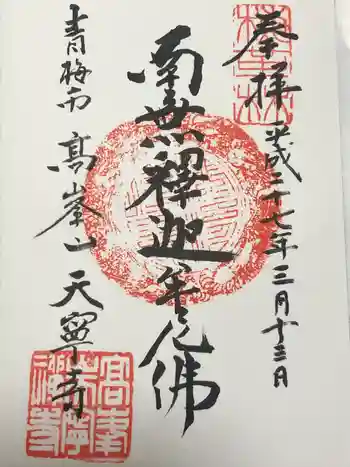 奉拝
平成二十七年三月十三日
南無釋迦牟尼佛
青梅市 高峯山 天寧寺
高峯
天寧
禅寺